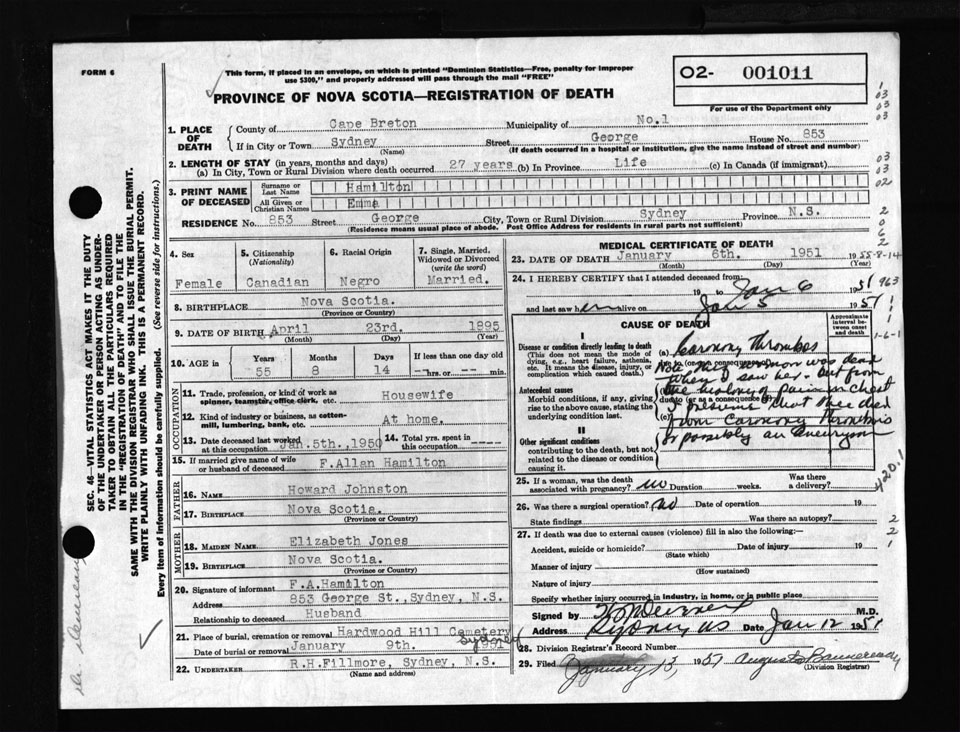 FORM 6
This form, if placed in an envelope, on which is printed "Dominion Statistics—Free, penalty for improper
use $300," and properly addressed will pass through the mail "FREE"
PROVINCE OF NOVA SCOTIA—REGISTRATION OF DEATH
O2- 001011
For use of the Department only
1. PLACE OF DEATH
County of Cape Breton Municipality of No.1
If in City or Town Sydney Street George House No. 853
(Name) (If death occurred in a hospital or institution, give the name instead of street and number)
2. LENGTH OF STAY (in years, months and days)
(a) In City, Town or Rural Division where death occurred 27 years (b) In Province Life (c) In Canada (if immigrant)
3. PRINT NAME OF DECEASED
Surname or Last Name Hamilton
All Given or Christian Names Emma
RESIDENCE No. 853 Street George City, Town or Rural Division Sydney Province N.S.
(Residence means usual place of abode. Post Office Address for residents in rural parts not sufficient)
4. Sex
Female
5. Citizenship
(Nationality)
Canadian
6. Racial Origin
Negro
7. Single, Married,
Widowed or Divorced
(write the word)
Married.
8. BIRTHPLACE Nova Scotia.
(Province or Country)
9. DATE OF BIRTH April 23rd. 1895
(Month) (Day) (Year)
10. AGE in
Years Months Days If less than one day old
55 8 14 --- hrs. or --- min.
OCCUPATION
11. Trade, profession, or kind of work as
spinner, teamster, office clerk, etc. Housewife
12. Kind of industry or business, as cotton-
mill, lumbering, bank, etc. At home.
13. Date deceased last worked
at this occupation Jan.5th.,1950
14. Total yrs. spent in
this occupation ---
15. If married give name of wife
or husband of deceased F.Allan Hamilton
FATHER
16. NAME Howard Johnston
17. BIRTHPLACE Nova Scotia.
(Province or Country)
MOTHER
18. MAIDEN NAME Elizabeth Jones
19. BIRTHPLACE Nova Scotia.
(Province or Country)
20. Signature of informant F.A.Hamilton
Address 853 George St.,Sydney, N.S.
Relationship to deceased Husband
21. Place of burial, cremation or removal Hardwood Hill Cemetery
Sydney
Date of burial or removal January 9th. 1951
22. UNDERTAKER R.H.Fillmore, Sydney, N.S.
(Name and address)
MEDICAL CERTIFICATE OF DEATH
23. DATE OF DEATH January 6th. 1951
(Month) (Day)
55-8-14
24. I HEREBY CERTIFY that I attended deceased from:
19 to Jan 6 1951
and last saw her alive on Jan 5 1951
CAUSE OF DEATH
Approximate
interval be-
tween onset
and death
I
Disease or condition directly leading to death
(This does not mean the mode of
dying, e.g., heart failure, asthenia,
etc. It means the disease, injury, or
complication which caused death.)
(a) Coronory Thrombos
due to (or as a consequence of)
Antecedent causes
Morbid conditions, if any, giving
rise to the above cause, stating the
underlying condition last.
(b)
due to (or as a consequence of)
(c)
Note this woman was dead
when I saw her. But from
the history of pain in chest
I presume that she died
from Coronory Thrombosis
or possibly an aneurysm
II
Other significant conditions
contributing to the death, but not
related to the disease or condition
causing it.
25. If a woman, was the death
associated with pregnancy? no Duration weeks. Was there
a delivery?
26. Was there a surgical operation? no
State findings Was there an autopsy?
27. If death was due to external causes (violence) fill in also the following:—
Accident, suicide or homicide? Date of injury 19
(State which)
Manner of injury
(How sustained)
Nature of injury
Specify whether injury occurred in industry, in home, or in public place
Signed by M.D.
Address Sydney, NS Date Jan 12 1951
28. Division Registrar's Record Number
29. Filed January 13, 1951
(Division Registrar)
SEC. 46—VITAL STATISTICS ACT MAKES IT THE DUTY
OF THE UNDERTAKER OR PERSON ACTING AS UNDER-
TAKER TO OBTAIN ALL THE PARTICULARS REQUIRED
IN THE "REGISTRATION OF DEATH" AND TO FILE THE
SAME WITH THE DIVISION REGISTRAR WHO SHALL ISSUE THE BURIAL PERMIT.
WRITE PLAINLY WITH UNFADING INK. THIS IS A PERMANENT RECORD.
Every item of information should be carefully supplied. (See reverse side for instructions.)
1
03
03
03
03
03
02
2
0
6
2
963
1-6-1
420.1
2
2
1